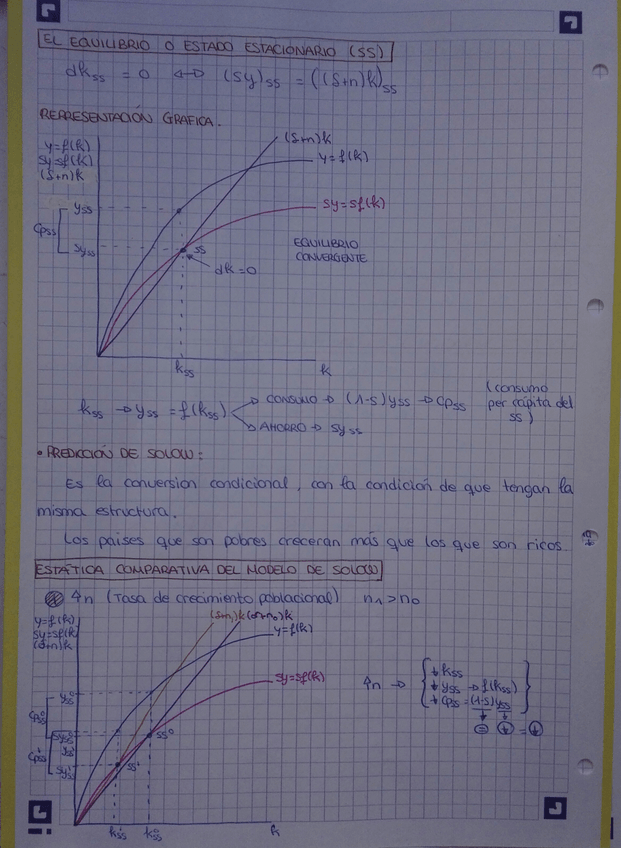 EL EQUILIBRIO O ESTADO ESTACIONARIO (SS)
dk_ss = 0 ⟺ (sy)_ss = ((δ+n)k)_ss
REPRESENTACIÓN GRAFICA.
(δ+n)k
y=f(k)
sy=sf(k)
(δ+n)k
y=f(k)
yss
sy=sf(k)
cpss
syss
ss
EQUILIBRIO
CONVERGENTE
dk=0
kss
k
kss → yss = f(kss)
CONSUMO → (1-s)yss → cpss
(consumo
per cápita del
ss)
AHORRO → syss
• PREDICCIÓN DE SOLOW:
Es la conversion condicional, con la condición de que tengan la
misma estructura.
Los paises que son pobres creceran más que los que son ricos.
ESTÁTICA COMPARATIVA DEL MODELO DE SOLOW
↑n (Tasa de crecimiento poblacional) n₁>n₀
(δ+n₁)k (δ+n₀)k
y=f(k)
sy=sf(k)
(δ+n)k
y=f(k)
sy=sf(k)
↑n →
↓kss
↓yss → f(kss)
↓cpss = (1-s)yss
= ↓ = ↓
y⁰ss
cp⁰ss
sy⁰ss
ss⁰
y¹ss
cp¹ss
sy¹ss
ss¹
k¹ss
k⁰ss
k